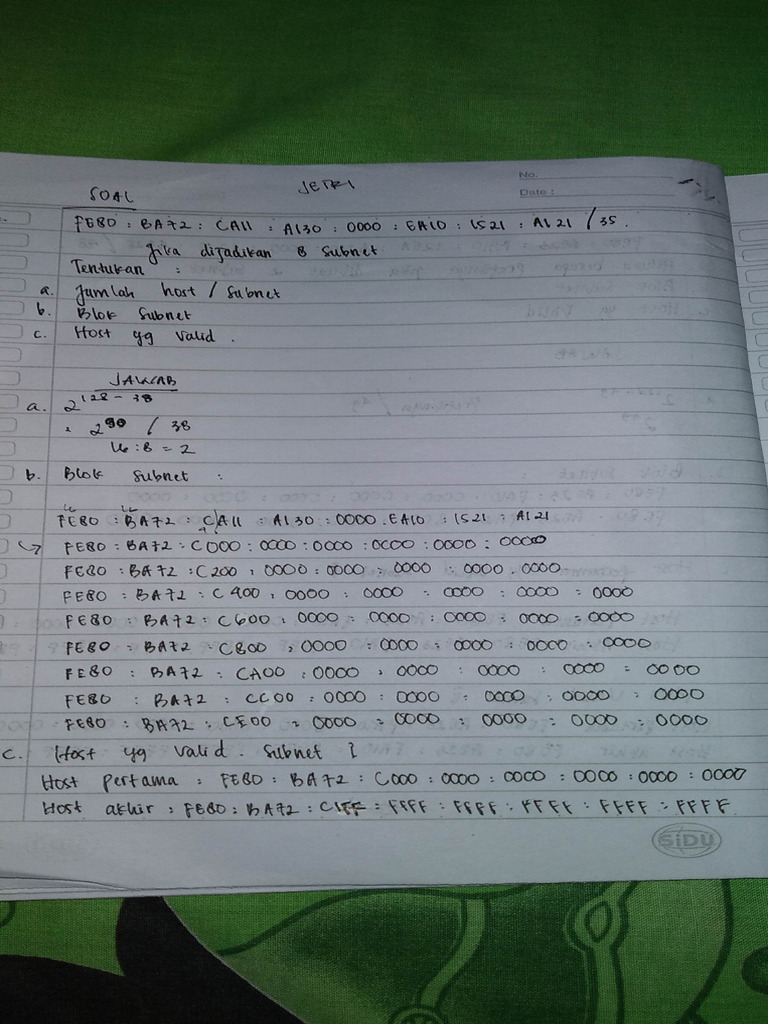 No.
SOAL JETRI
Date :
FE80 : BA72 : CA11 : A130 : 0000 : EA10 : 1521 : A121 / 35.
Jika dijadikan 8 subnet
Tentukan :
a. Jumlah host / subnet
b. Blok Subnet
c. Host yg valid .
JAWAB
a. 2^128 - 38
= 2^90 / 38
16 : 8 = 2
b. Blok subnet :
16 16
FE80 : BA72 : CA11 : A130 : 0000 . EA10 : 1521 : A121
FE80 : BA72 : C000 : 0000 : 0000 : 0000 : 0000 : 0000
FE80 : BA72 : C200 : 0000 : 0000 : 0000 : 0000 . 0000
FE80 : BA72 : C400 : 0000 : 0000 : 0000 : 0000 : 0000
FE80 : BA72 : C600 : 0000 : 0000 : 0000 : 0000 : 0000
FE80 : BA72 : C800 : 0000 : 0000 : 0000 : 0000 : 0000
FE80 : BA72 : CA00 : 0000 : 0000 : 0000 : 0000 : 0000
FE80 : BA72 : CC00 : 0000 : 0000 : 0000 : 0000 : 0000
FE80 : BA72 : CE00 : 0000 : 0000 : 0000 : 0000 : 0000
c. Host yg valid . Subnet 1
Host pertama : FE80 : BA72 : C000 : 0000 : 0000 : 0000 : 0000 : 0000
Host akhir : FE80 : BA72 : C1FF : FFFF : FFFF : FFFF : FFFF : FFFF
SiDU